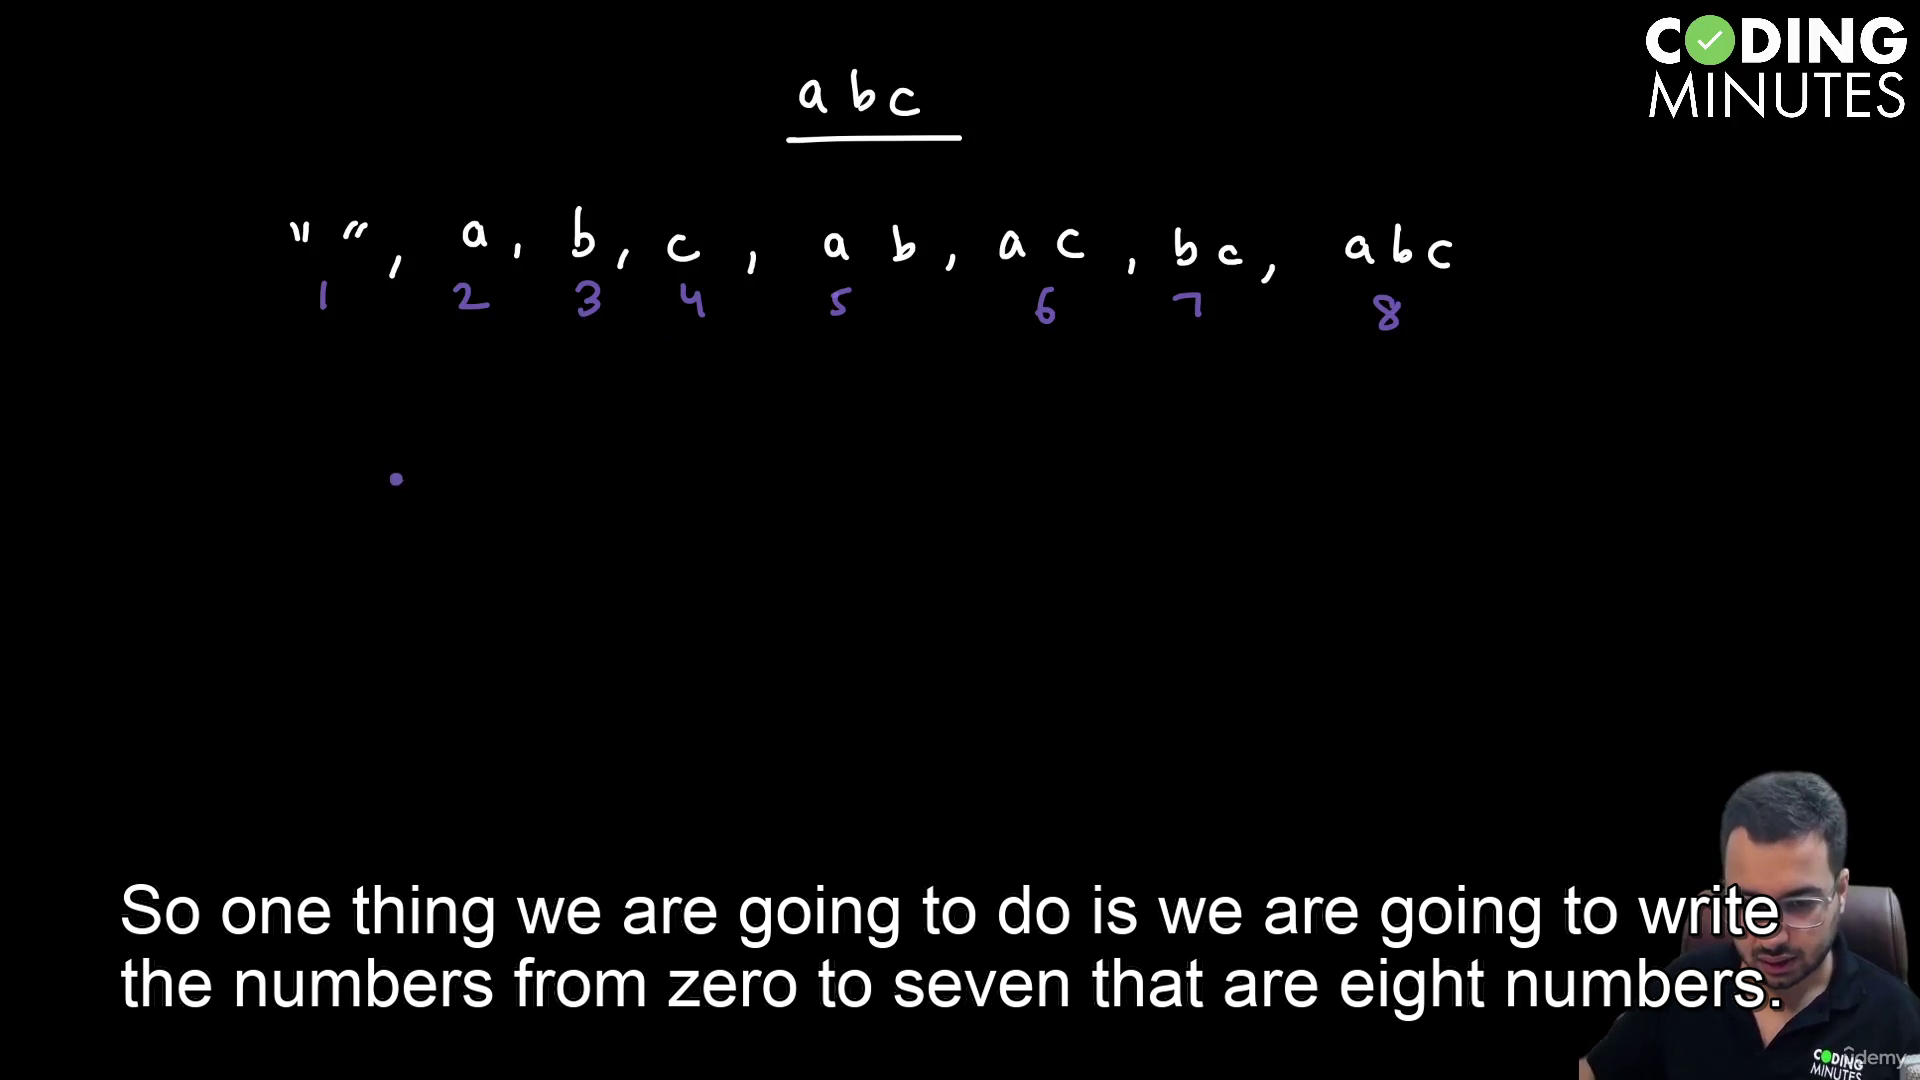 CODING
MINUTES
a b c
" ", a, b, c, a b, a c, b c, a b c
1 2 3 4 5 6 7 8
So one thing we are going to do is we are going to write
the numbers from zero to seven that are eight numbers.
CODING
MINUTES
ûdemy